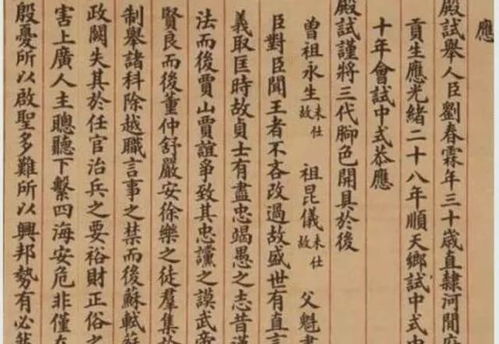 應
殿試舉人臣劉春霖年三十歲直隸河間府
貢生應光緒二十八年順天鄉試中式中
十年會試中式恭應
殿試謹將三代腳色開具於後
曾祖永生未仕故 祖昆儀未仕故 父魁書
臣對臣聞王者不吝改過故盛世有直言
義取匡時故貞士有盡忠竭愚之志昔漢
法而後賈山賈誼爭致其忠讜之謨武帝
賢良而後董仲舒嚴安徐樂之徒羣集於
制舉諸科除越職言事之禁而後蘇軾蘇
政闕失其於任官治兵之要裕財正俗之
害上廣人主聰聽下繫四海安危非僅在
殷憂所以啟聖多難所以興邦勢有必然